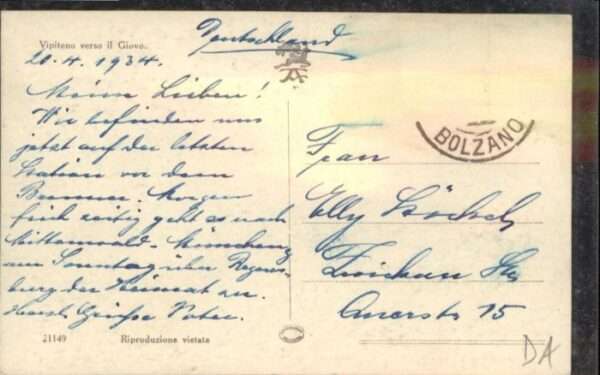 Vipiteno verso il Giovo.
Deutschland
20.4.1934.
Meine Lieben!
Wir befinden uns
jetzt auf der letzten
Station vor dem
Brenner. Morgen
früh zeitig geht es nach
Mittenwald - München,
am Sonntag über Regens-
burg der Heimat zu.
Herzl. Grüße Vater.
21149
Riproduzione vietata
BOLZANO
Frau
Elly
Zwickau Sa
Auerstr 15
DA